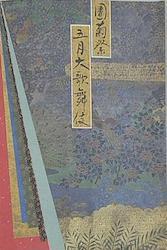 團菊祭
五月大歌舞伎